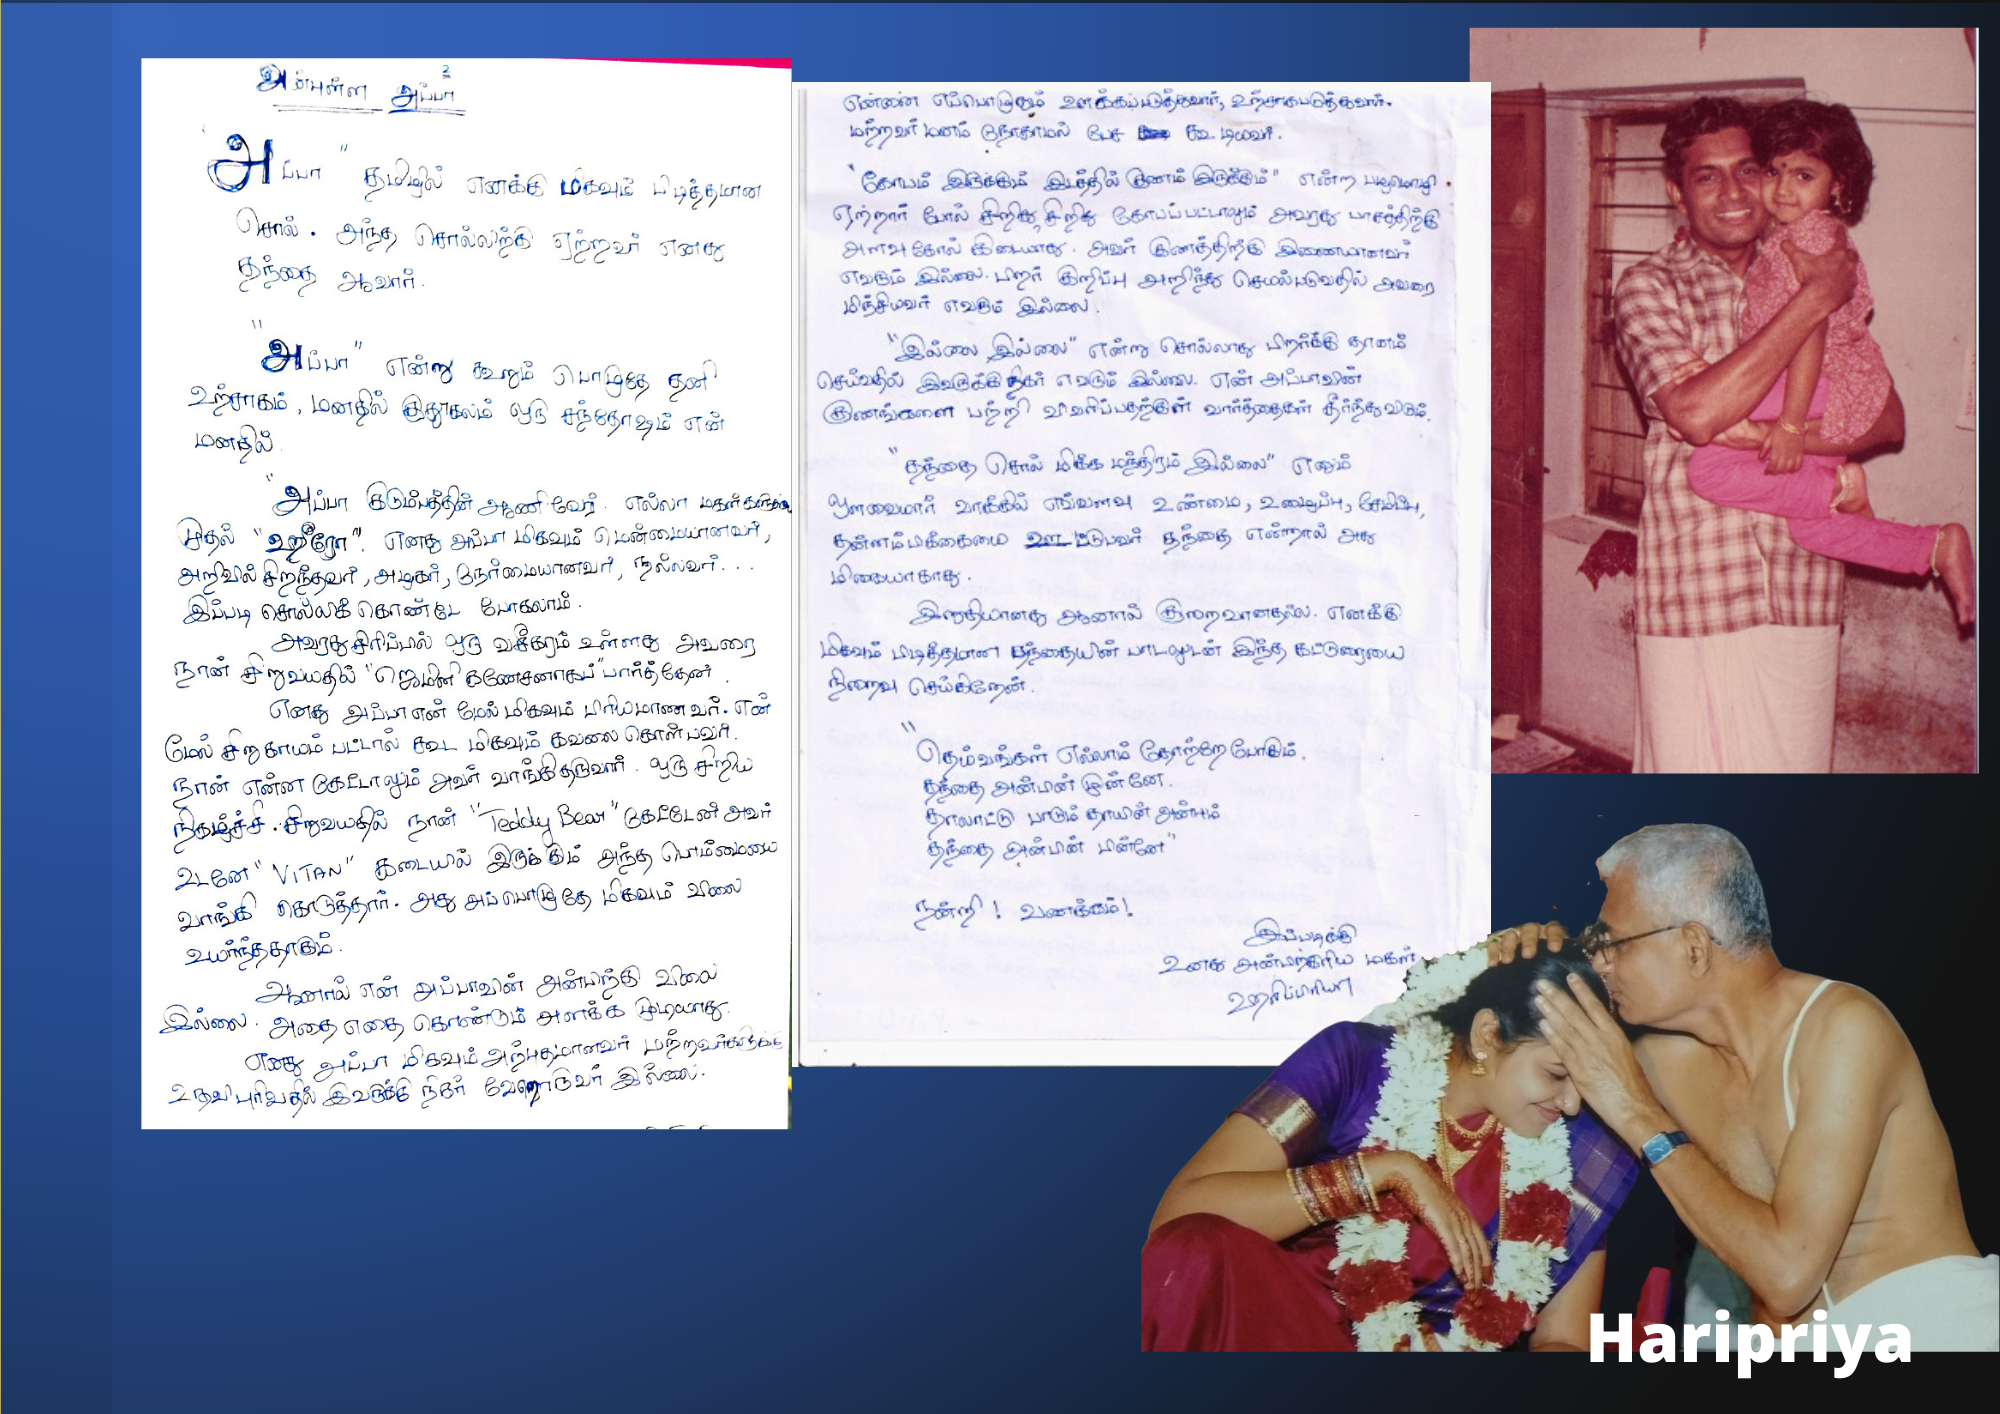 அன்புள்ள அப்பா
2
"அப்பா" தமிழில் எனக்கு மிகவும் பிடித்தமான
சொல். அந்த சொல்லிற்கு ஏற்றவர் எனது
தந்தை ஆவார்.
"அப்பா" என்று கூறும் பொழுதே தனி
உற்சாகம், மனதில் குதூகலம் ஒரு சந்தோஷம் என்
மனதில்.
"அப்பா குடும்பத்தின் ஆணி வேர். எல்லா
முதல் "ஹீரோ". எனது அப்பா மிகவும் மென்மையானவர்,
அறிவில் சிறந்தவர், அழகர், நேர்மையானவர், நல்லவர்...
இப்படி சொல்லிக் கொண்டே போகலாம்.
அவரது சிரிப்பில் ஒரு வசீகரம் உள்ளது அவரை
நான் சிறுவயதில் "ஜெமினி கணேசனாகப்" பார்த்தேன்.
எனது அப்பா என் மேல் மிகவும் பிரியமாணவர். என்
மேல் சிறு காயம் பட்டால் கூட மிகவும் கவலை கொள்பவர்.
நான் என்ன கேட்டாலும் அவர் வாங்கிதருவார். ஒரு சிறிய
நிகழ்ச்சி. சிறுவயதில் நான் "Teddy Bear" கேட்டேன் அவர்
உடனே "VITAN" கடையில் இருக்கும் அந்த பொம்மையை
வாங்கி கொடுத்தார். அது அப்பொழுதே மிகவும் விலை
உயர்ந்ததாகும்.
ஆனால் என் அப்பாவின் அன்பிற்கு விலை
இல்லை. அதை எதை கொண்டும் அளக்க முடியாது.
எனது அப்பா மிகவும் அற்புதமானவர் மற்றவர்களுக்கு
உதவி புரிவதில் இவருக்கு நிகர் வேறொருவர் இல்லை.
என்னை எப்பொழுதும் ஊக்கப்படுத்துவார், உற்சாகபடுத்துவார்.
மற்றவர் மனம் நோகாமல் பேச கூடியவர்.
"கோபம் இருக்கும் இடத்தில் குணம் இருக்கும்" என்ற பழமொழி
ஏற்றார் போல் சிறிது, சிறிது கோபப்பட்டாலும் அவரது பாசத்திற்கு
அளவுகோல் கிடையாது. அவர் குனத்திற்கு இணையானவர்
எவரும் இல்லை. பிறர் குறிப்பு அறிந்து செயல்படுவதில் அவரை
மிஞ்சியவர் எவரும் இல்லை.
"இல்லை இல்லை" என்று சொல்லாது பிறர்க்கு தானம்
செய்வதில் இவருக்கு நிகர் எவரும் இல்லை. என் அப்பாவின்
குணங்களை பற்றி விவரிப்பதற்குள் வார்த்தைகள் தீர்ந்துவிடும்.
"தந்தை சொல் மிக்க மந்திரம் இல்லை" எனும்
ஒளவைமார் வாக்கில் எவ்வளவு உண்மை, உழைப்பு, சேமிப்பு,
தன்னம்பிக்கையை ஊட்டுபவர் தந்தை என்றால் அது
மிகையாகாது.
இறுதியானது ஆனால் குறைவானதல்ல. எனக்கு
மிகவும் பிடித்தமான தந்தையின் பாடலுடன் இந்த கட்டுரையை
நிறைவு செய்கிறேன்.
"தெய்வங்கள் எல்லாம் தோற்றே போகும்.
தந்தை அன்பின் முன்னே.
தாலாட்டு பாடும் தாயின் அன்பும்
தந்தை அன்பின் பின்னே"
நன்றி! வணக்கம்!
இப்படிக்கு
உனது அன்பிற்குரிய மகள்
ஹரிப்பிரியா
Haripriya